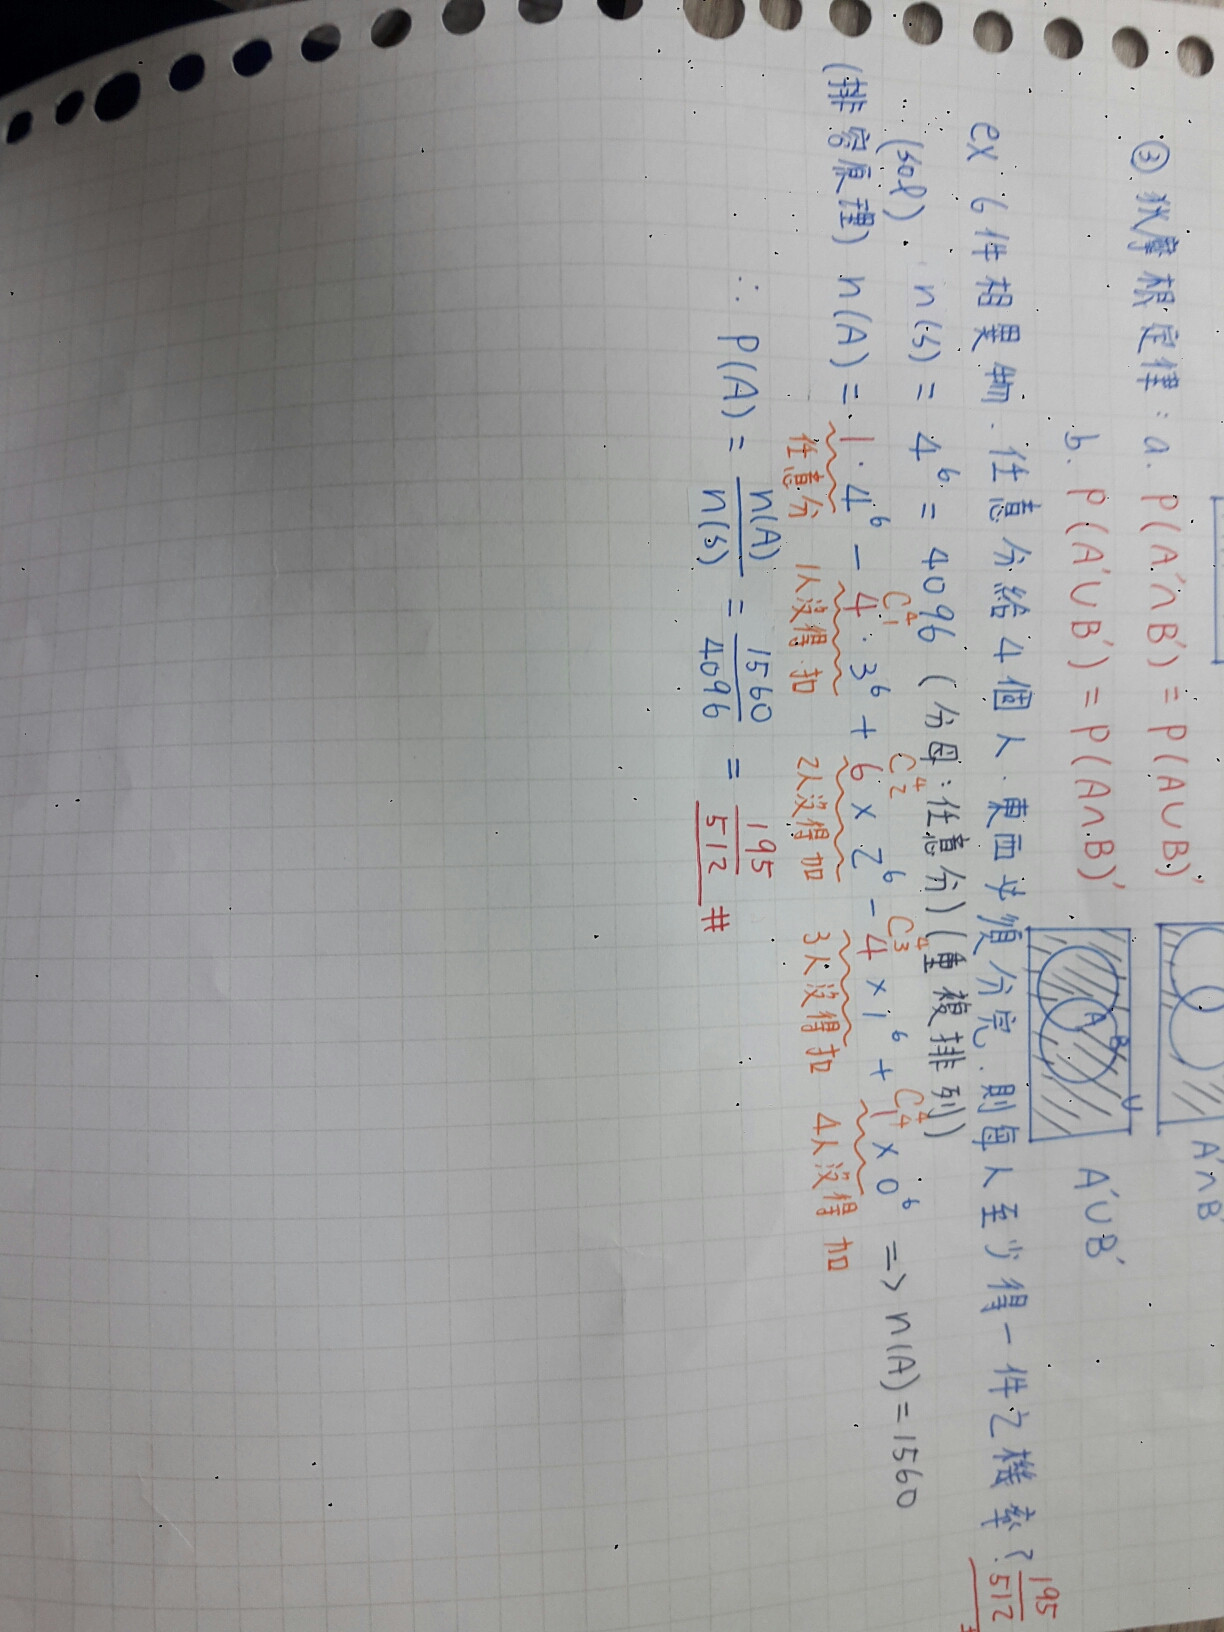 ③ 狄摩根定律：a. P(A'∩B') = P(A∪B)'
A'∩B'
b. P(A'∪B') = P(A∩B)'
A B U
A'∪B'
ex 6件相異物．任意分給4個人．東西必須分完．則每人至少得一件之機率？ 195/512
(sol) n(S) = 4⁶ = 4096 (分母：任意分)(重複排列)
C⁴₁ C⁴₂ C⁴₃ C⁴₄
(排容原理) n(A) = 1·4⁶ - 4·3⁶ + 6×2⁶ - 4×1⁶ + 1×0⁶ => n(A) = 1560
任意分 1人沒得 扣 2人沒得 加 3人沒得 扣 4人沒得 加
∴ P(A) = n(A)/n(S) = 1560/4096 = 195/512 #